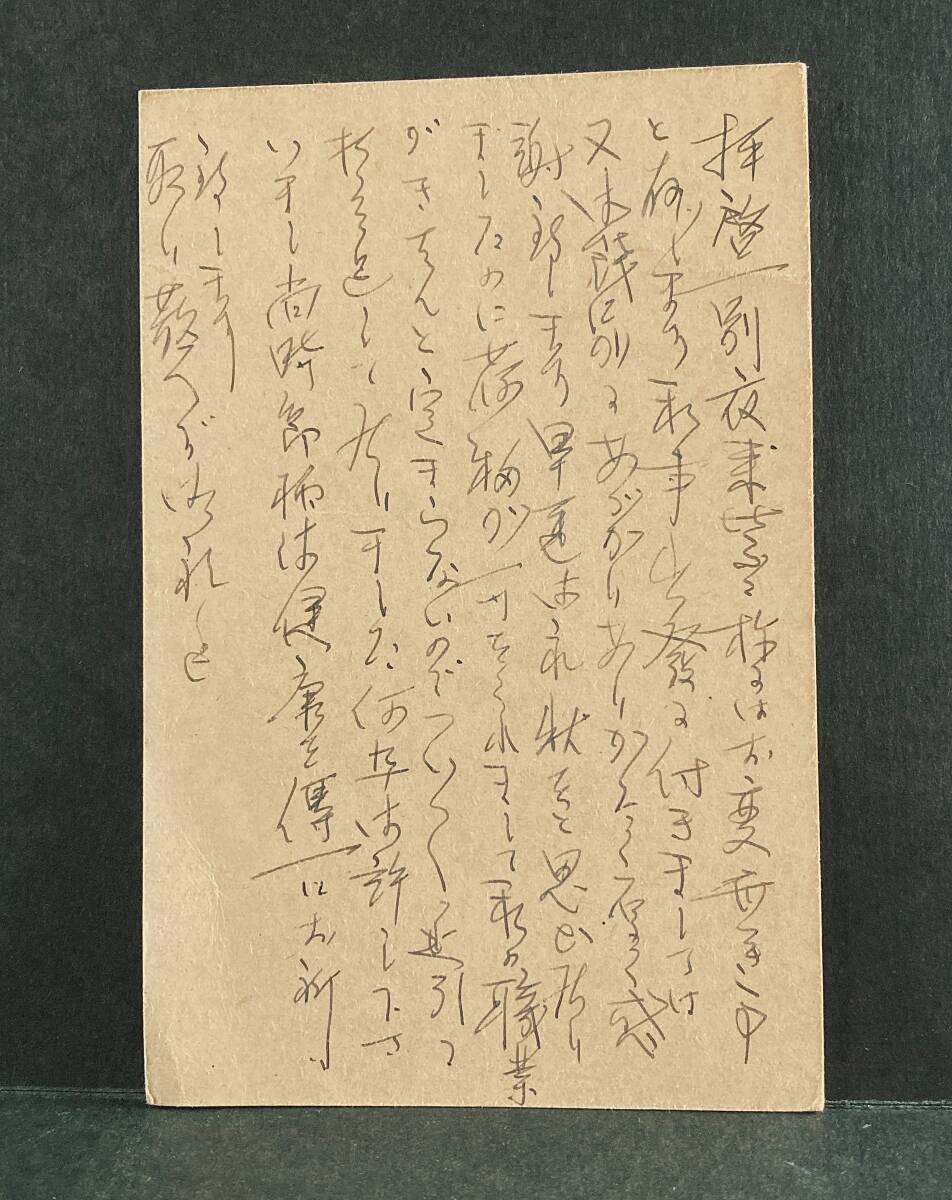 拝啓 別衣来皆々様にはお変無き事
と存じます 私事出発に付きましては
又御餞別にあづかりありがたく厚く感
謝致します 早速御礼状をと思ひ居り
ましたのに荷物が をくれまして私の職業
がきちんと定まらないのでついつい延引に
相なって居りました 何卒御許し下さ
いまし 尚時節柄御健康を専一にお祈り
致します
取り敢へず御礼迄